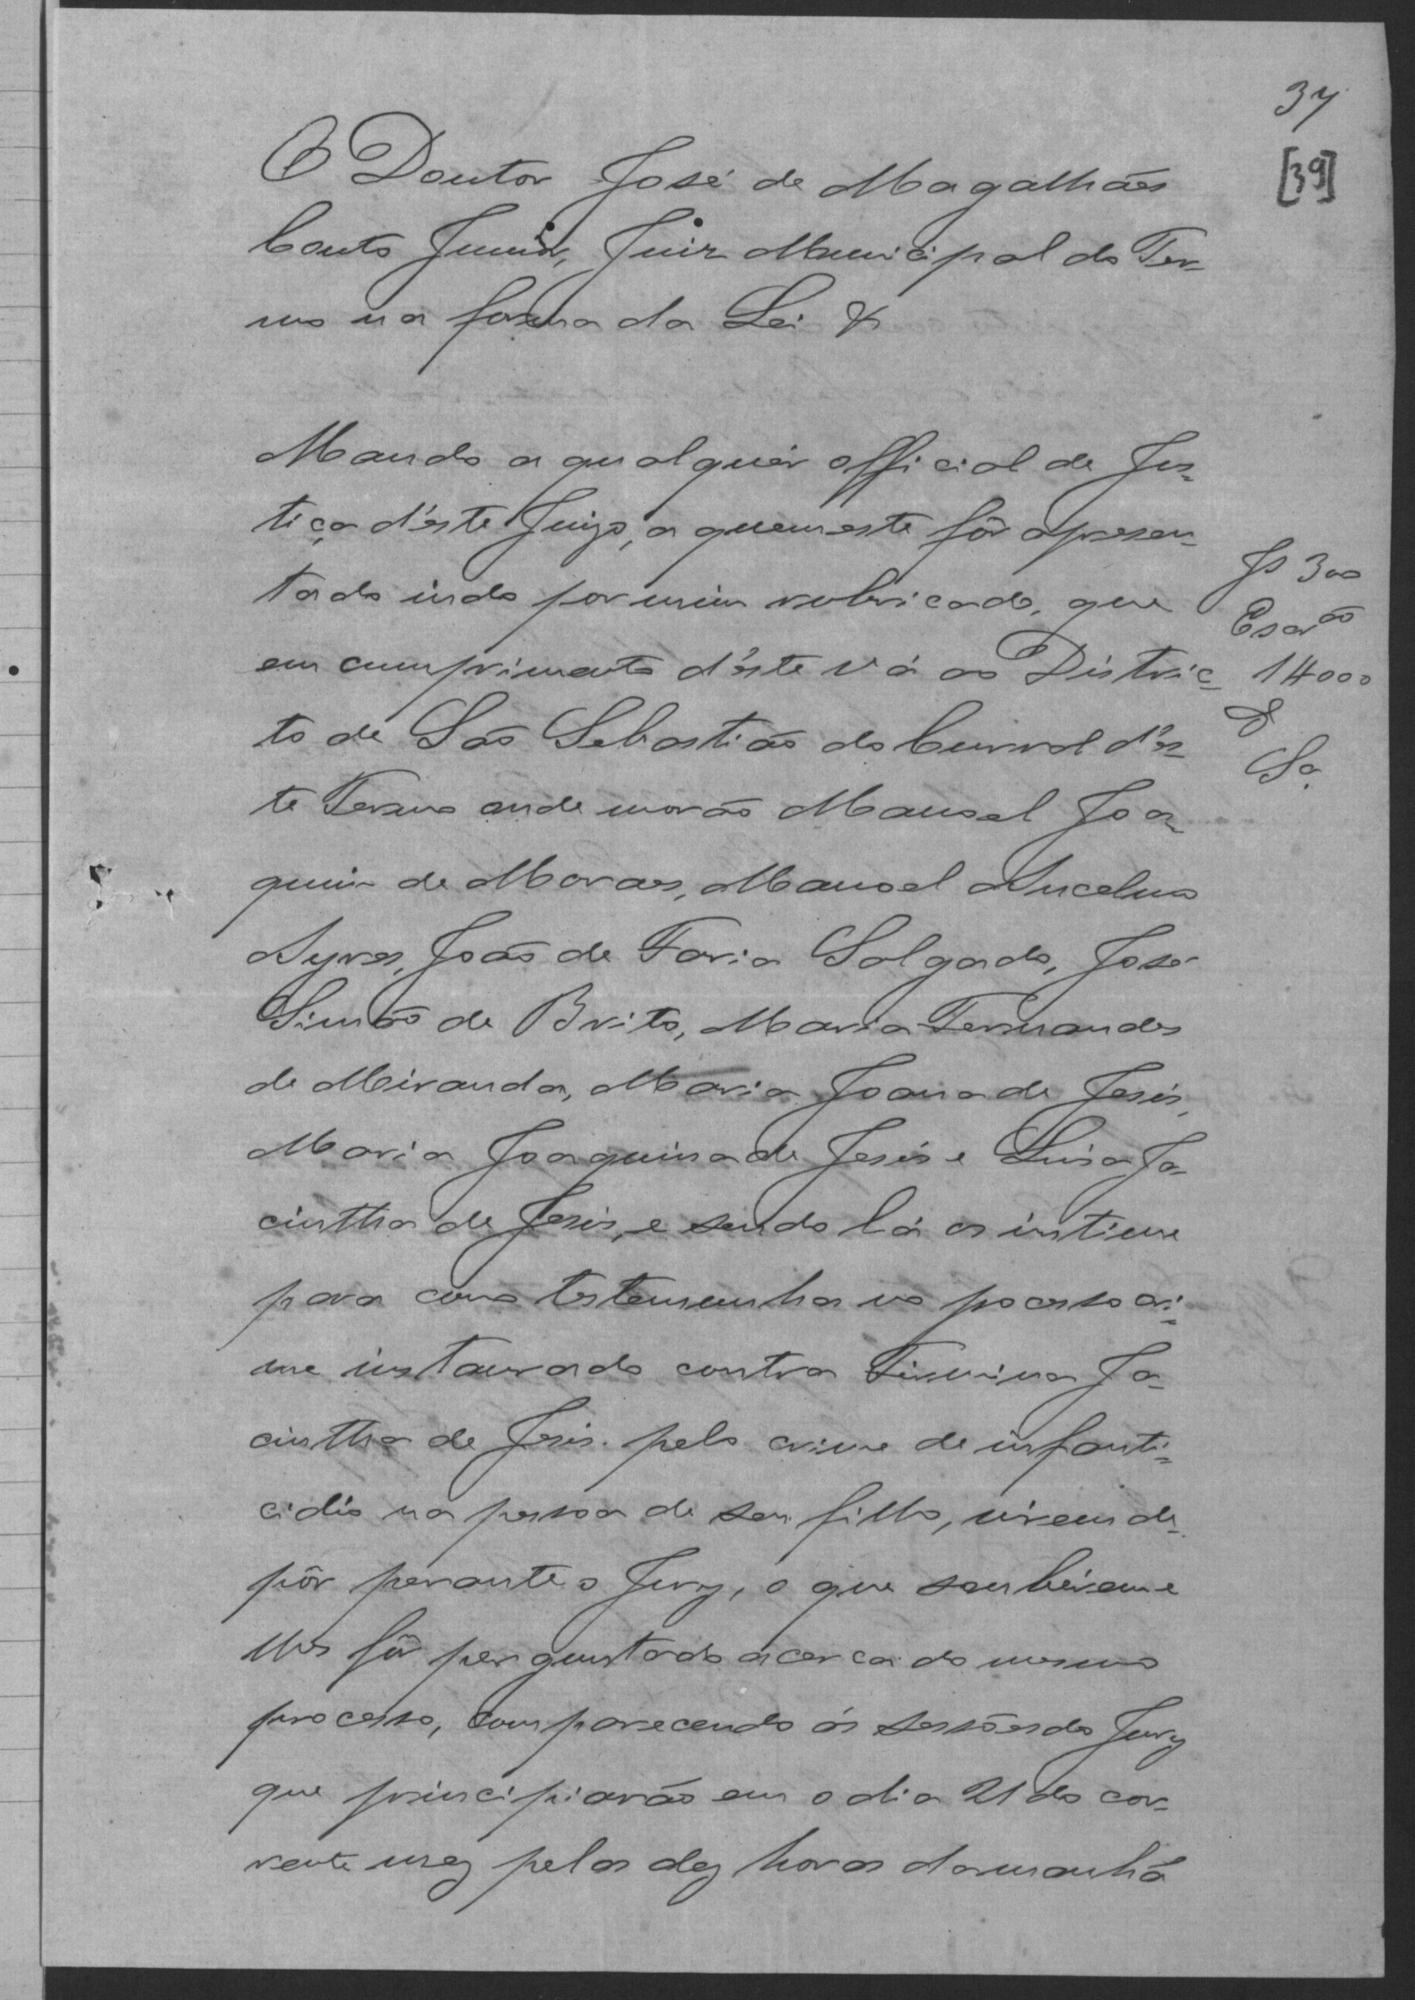 37
[39]
O Doutor José de Magalhães
Couto Junior, Juiz Municipal do Ter-
mo na forma da Lei &
Mando a qualquér official de Jus-
tiça d'éste Juizo, a quem este fôr apresen-
tado indo por mim rubricado, que
em cumprimento d'éste vá ao Distric-
to de São Sebastião do Curral d'és-
te Termo onde morão Manoel Joa-
quim de Moraes, Manoel Ancelmo
Ayres, João de Faria Salgado, José
Simão de Brito, Maria Fernandes
de Miranda, Maria Joana de Jesús,
Maria Joaquina de Jesús e Luisa Ja-
cintha de Jesús, e sendo lá os intime
para como testemunhas no pocesso cri-
me instaurado contra Firmina Ja-
cintha de Jesús. pelo crime de infanti-
cidio na pessoa de seu filho, virem de-
pôr perante o Jury, o que soubérem e
lhes fôr perguntado ácerca do mesmo
processo, comparecendo ás sessões do Jury
que principiarão em o dia 21 do cor-
rente mez pelas dez horas da manhã
Js 300
Escrão
14000
&